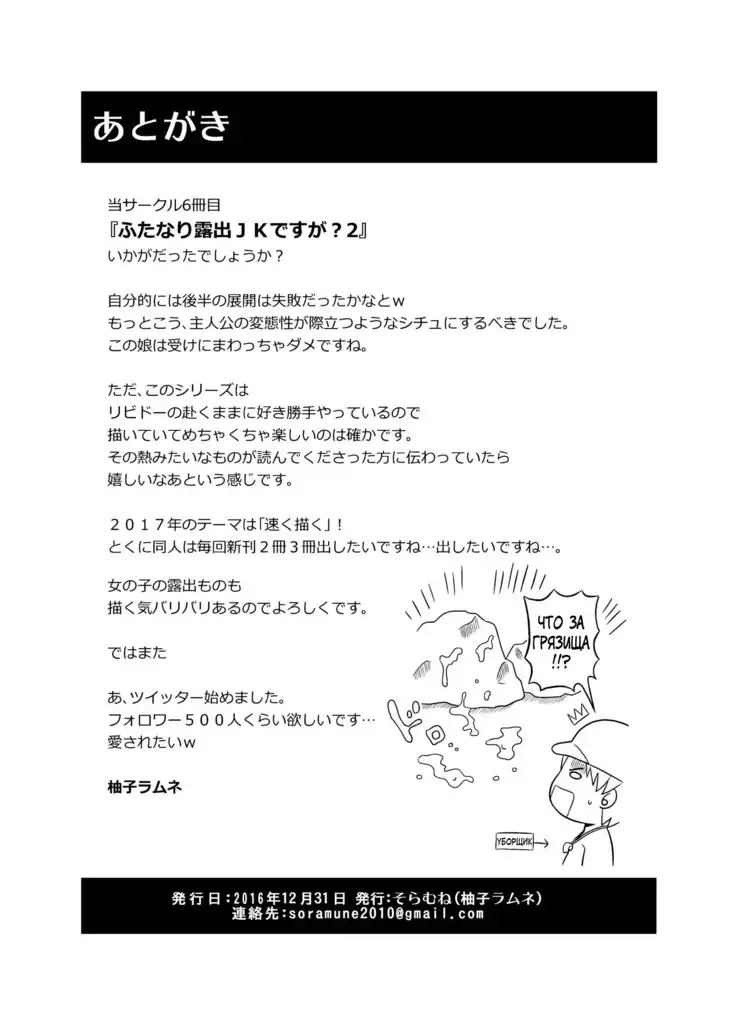 あとがき
当サークル6冊目
『ふたなり露出ＪＫですが？2』
いかがだったでしょうか？
自分的には後半の展開は失敗だったかなとｗ
もっとこう、主人公の変態性が際立つようなシチュにするべきでした。
この娘は受けにまわっちゃダメですね。
ただ、このシリーズは
リビドーの赴くままに好き勝手やっているので
描いていてめちゃくちゃ楽しいのは確かです。
その熱みたいなものが読んでくださった方に伝わっていたら
嬉しいなあという感じです。
２０１７年のテーマは「速く描く」！
とくに同人は毎回新刊２冊３冊出したいですね…出したいですね…。
女の子の露出ものも
描く気バリバリあるのでよろしくです。
ではまた
あ、ツイッター始めました。
フォロワー５００人くらい欲しいです…
愛されたいｗ
柚子ラムネ
ЧТО ЗА
ГРЯЗИЩА
!!?
УБОРЩИК
発行日:2016年12月31日 発行:そらむね(柚子ラムネ)
連絡先:soramune2010@gmail.com